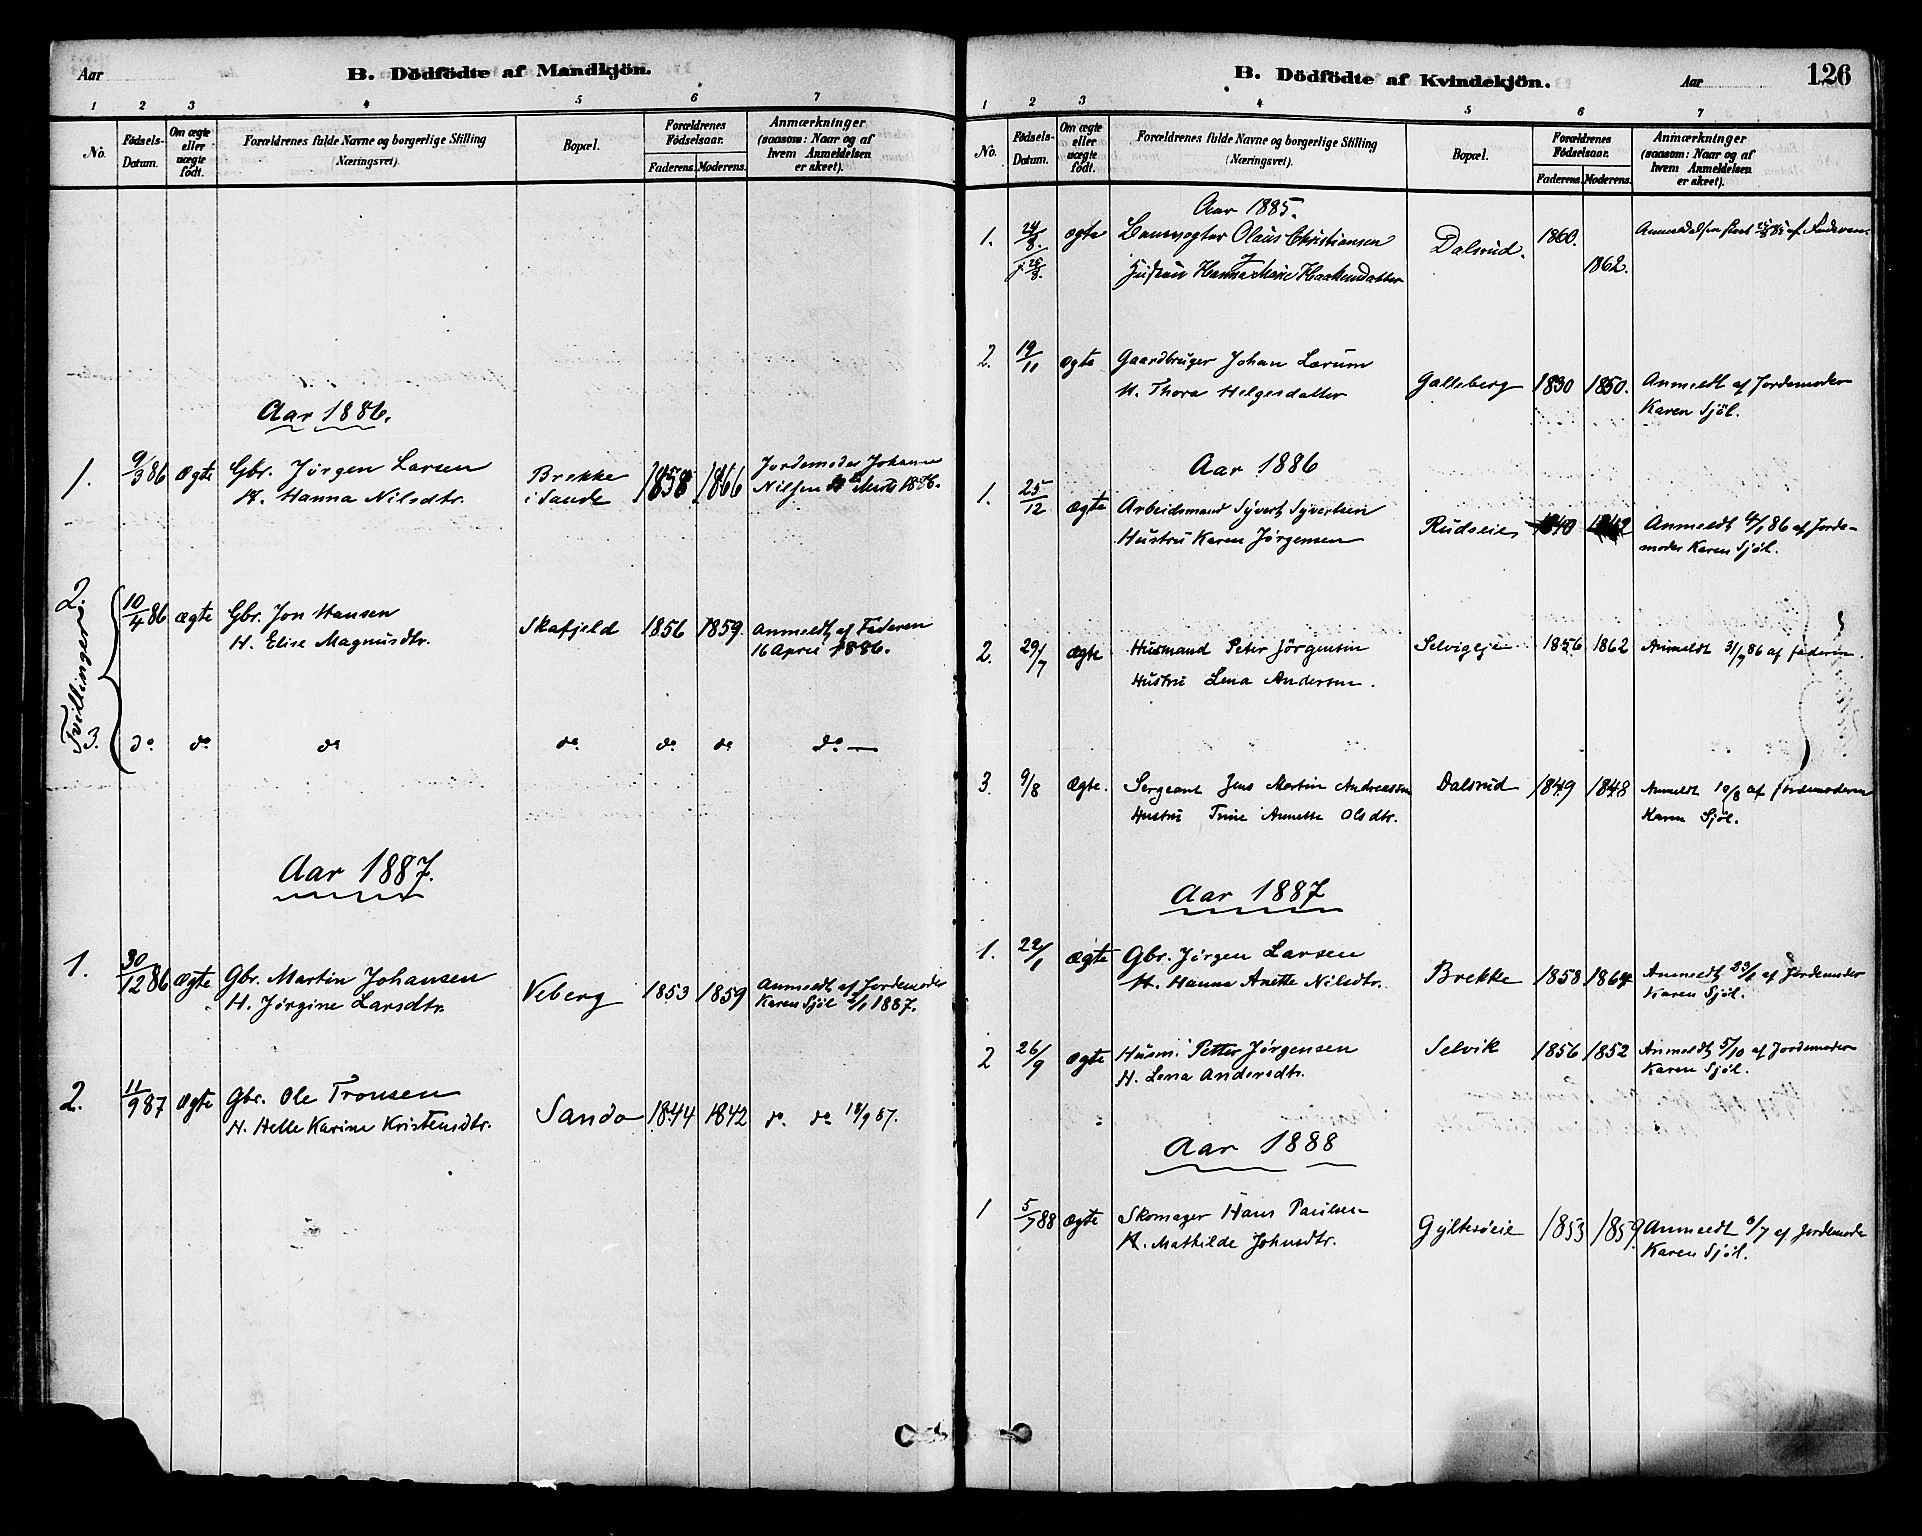 Aar
B. Dödfödte af Mandkjön.
1 2 3 4 5 6 7
No.
Fødsels-Datum.
Om ægte eller uægte født.
Forældrenes fulde Navne og borgerlige Stilling
(Næringsvei).
Bopæl.
Forældrenes Fødselsaar.
Faderens. Moderens.
Anmærkninger
(saasom: Naar og af
hvem Anmeldelsen
er skeet).
Aar 1886.
1. 9/3 86 Ægte Gbr. Jørgen Larsen Brekke 1858 1866 Jordemoder Johanne
H. Hanna Nilsdtr. i Sande Nilsen Marts 1886.
Tvillinger
2. 10/4 86 ægte Gbr. Jon Hansen Skafjeld 1856 1859. Anmeldt af Faderen
H. Elise Magnusdtr. 16 April 1886.
3. do do do do do do do —
Aar 1887.
1. 30/12 86 ægte Gbr. Martin Johansen Veberg 1853 1859 Anmeldt af Jordemoder
H. Jørgine Larsdtr. Karen Sjöl 2/1 1887.
2. 11/9 87 ægte Gbr. Ole Tronsen Sando 1844 1842 do do
H. Helle Karine Kristensdtr.
B. Dödfödte af Kvindekjön.
Aar
126
1 2 3 4 5 6 7
No.
Fødsels-Datum.
Om ægte eller uægte født.
Forældrenes fulde Navne og borgerlige Stilling
(Næringsvei).
Bopæl.
Forældrenes Fødselsaar.
Faderens. Moderens.
Anmærkninger
(saasom: Naar og af
hvem Anmeldelsen
er skeet).
Aar 1885.
1. ægte Banevogter Olaus Christiansen Dalsrud. 1860. af Faderen
Hustru Hanna Marie Haakensdatter 1862.
2. 19/11 ægte Gaardbruger Johan Lærum
H. Thora Helgesdatter Galleberg 1830 1850. Anmeldt af Jordemoder
Karen Sjöl.
Aar 1886
1. 25/12 ægte Arbeidsmand Syvert Syvertsen
Hustru Karen Jørgensen Rudseie 1840 Anmeldt 4/1 86 af Jorde-
moder Karen Sjöl.
2. 29/7 ægte Husmand Peter Jörgensen Selvigeje 1856 1862 Anmeldt 31/7 86 af faderen.
Hustru Lena Andersen.
3. 9/8 Ægte. Sergeant Jens Martin Andreassen Dalsrud 1849 1848 Anmeldt 10/8 af jordemoderen
Hustru Trine Annette Olsdtr. Karen Sjöl.
Aar 1887
1. 22/1 ægte Gbr. Jørgen Larsen
H. Hanna Anette Nilsdtr. Brekke 1858 1864 Anmeldt 23/1 af Jordemoder
Karen Sjöl.
2 26/9 ægte Husm. Petter Jörgensen Selvik 1856 1852 Anmeldt 5/10 af Jordemoder
H. Lena Andersdtr. Karen Sjöl.
Aar 1888
1 5/7 88 ægte Skomager Hans Paulsen Gyltesöeie 1853 1859 Anmeldt 6/7 af Jordemoder
H. Mathilde Johnsdtr. Karen Sjöl.